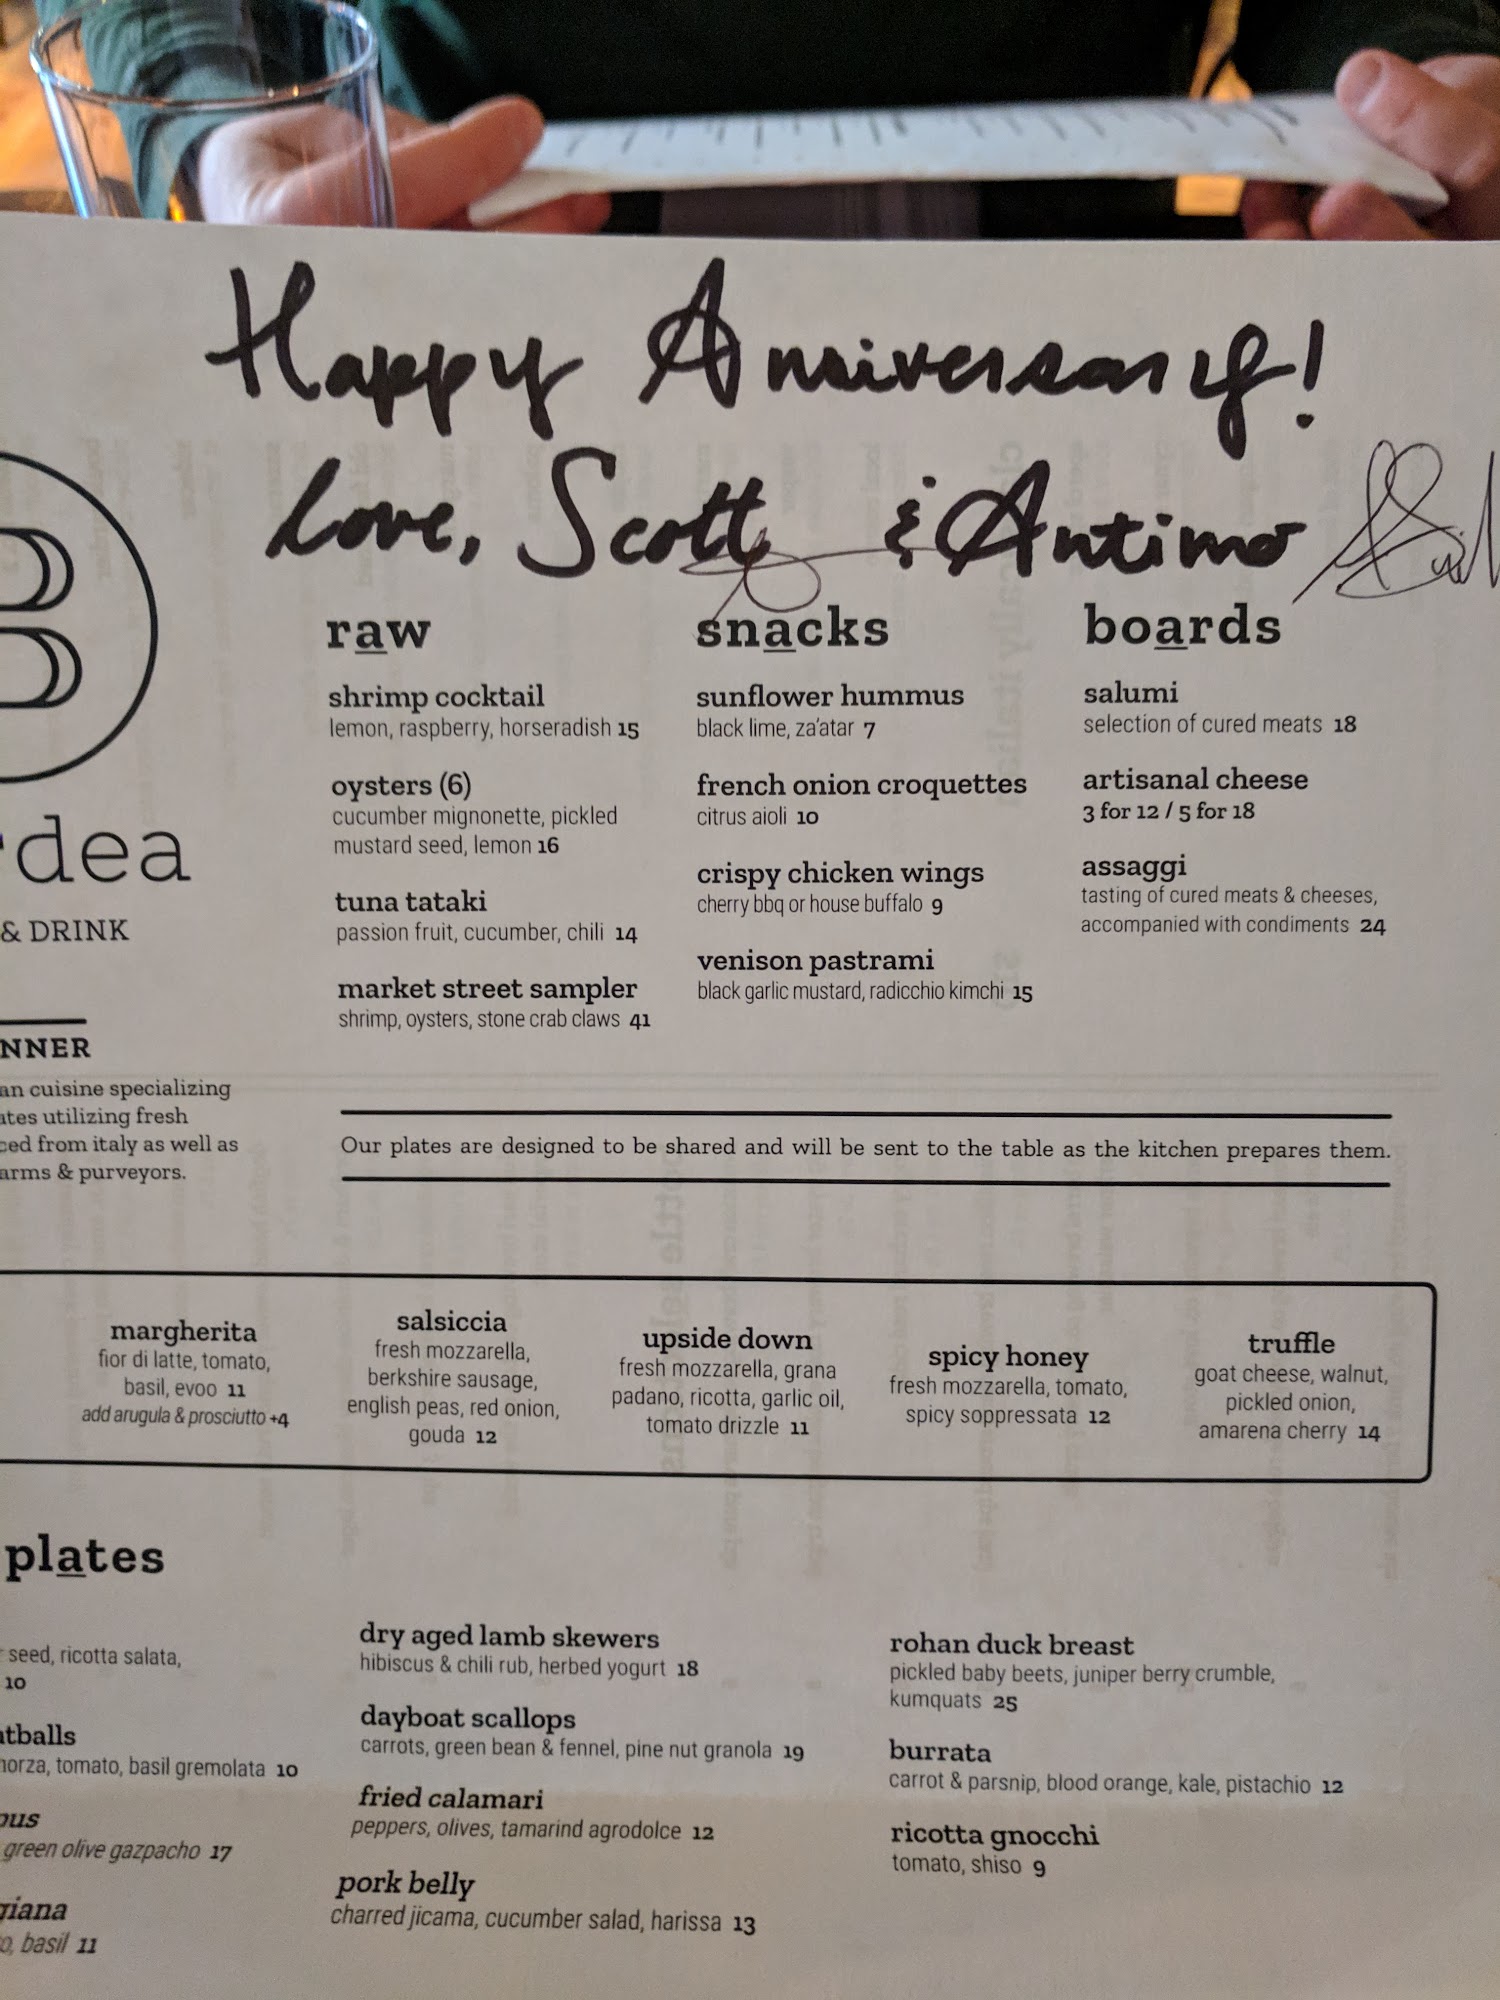 Happy Anniversary!
Love, Scott & Antimo
B
dea
& DRINK
NNER
an cuisine specializing
ates utilizing fresh
ced from italy as well as
arms & purveyors.
raw
shrimp cocktail
lemon, raspberry, horseradish 15
oysters (6)
cucumber mignonette, pickled
mustard seed, lemon 16
tuna tataki
passion fruit, cucumber, chili 14
market street sampler
shrimp, oysters, stone crab claws 41
snacks
sunflower hummus
black lime, za'atar 7
french onion croquettes
citrus aioli 10
crispy chicken wings
cherry bbq or house buffalo 9
venison pastrami
black garlic mustard, radicchio kimchi 15
boards
salumi
selection of cured meats 18
artisanal cheese
3 for 12 / 5 for 18
assaggi
tasting of cured meats & cheeses,
accompanied with condiments 24
Our plates are designed to be shared and will be sent to the table as the kitchen prepares them.
margherita
fior di latte, tomato,
basil, evoo 11
add arugula & prosciutto +4
salsiccia
fresh mozzarella,
berkshire sausage,
english peas, red onion,
gouda 12
upside down
fresh mozzarella, grana
padano, ricotta, garlic oil,
tomato drizzle 11
spicy honey
fresh mozzarella, tomato,
spicy soppressata 12
truffle
goat cheese, walnut,
pickled onion,
amarena cherry 14
plates
seed, ricotta salata,
10
atballs
morza, tomato, basil gremolata 10
pus
green olive gazpacho 17
giana
o, basil 11
dry aged lamb skewers
hibiscus & chili rub, herbed yogurt 18
dayboat scallops
carrots, green bean & fennel, pine nut granola 19
fried calamari
peppers, olives, tamarind agrodolce 12
pork belly
charred jicama, cucumber salad, harissa 13
rohan duck breast
pickled baby beets, juniper berry crumble,
kumquats 25
burrata
carrot & parsnip, blood orange, kale, pistachio 12
ricotta gnocchi
tomato, shiso 9